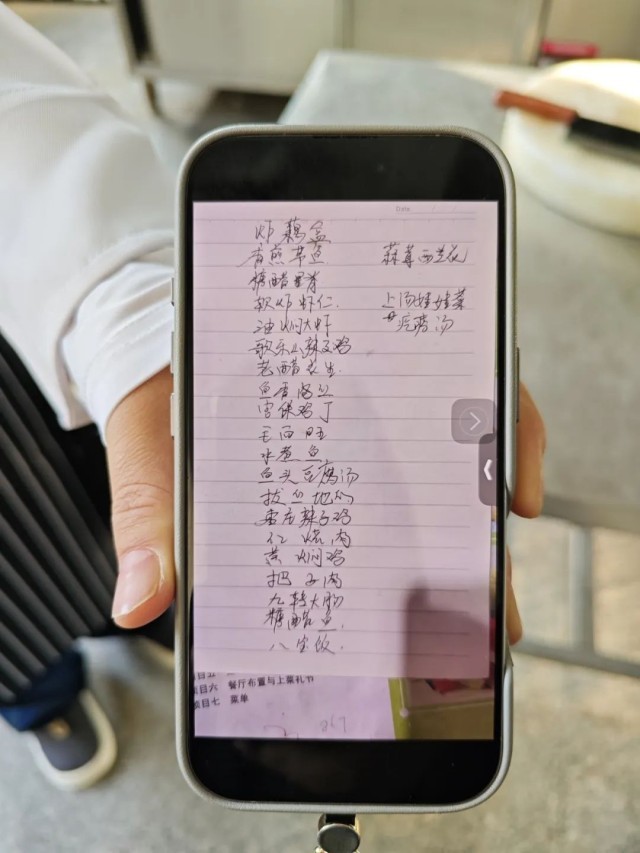 Date
炸藕盒
香煎带鱼
糖醋里脊
软炸虾仁.
油焖大虾
歌乐山辣子鸡
老醋花生.
鱼香肉丝
宫保鸡丁
毛血旺
水煮鱼
鱼头豆腐汤
拔丝地瓜
枣庄辣子鸡
红烧肉
黄焖鸡
把子肉
九转大肠
糖醋鱼.
八宝饭.
蒜蓉西兰花
上汤娃娃菜
疙瘩汤
项目六 餐厅布置与上菜礼节
项目七 菜单